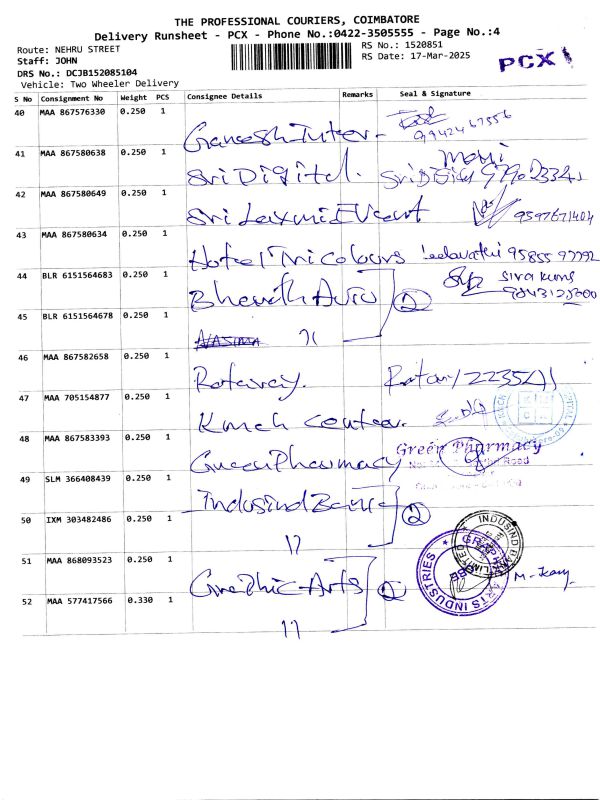 THE PROFESSIONAL COURIERS, COIMBATORE
Delivery Runsheet - PCX - Phone No.:0422-3505555 - Page No.:4
Route: NEHRU STREET RS No.: 1520851
Staff: JOHN RS Date: 17-Mar-2025
PCX
DRS No.: DCJB152085104
Vehicle: Two Wheeler Delivery
S No Consignment No Weight PCS Consignee Details Remarks Seal & Signature
40 MAA 867576330 0.250 1
Ganesh Inter- 9942467556
41 MAA 867580638 0.250 1
Sri Digital. Sri Digital
42 MAA 867580649 0.250 1
Sri Laxmi Event 9597671404
43 MAA 867580634 0.250 1
Hotel Tricolours Leelavathi 95855 97792
44 BLR 6151564683 0.250 1
Bharath Auto 2 Siva kumar
45 BLR 6151564678 0.250 1
NASIMA
46 MAA 867582658 0.250 1
Rotary. Rotary 2235211
47 MAA 705154877 0.250 1
Kmch center
48 MAA 867583393 0.250 1
Green Pharmacy Green Pharmacy
Road
49 SLM 366408439 0.250 1
Indusind Bank 2
50 IXM 303482486 0.250 1
11
INDUSIND BANK LIMITED
51 MAA 868093523 0.250 1
Graphic Arts 2
GRAPHIC ARTS INDUSTRIES
52 MAA 577417566 0.330 1
11